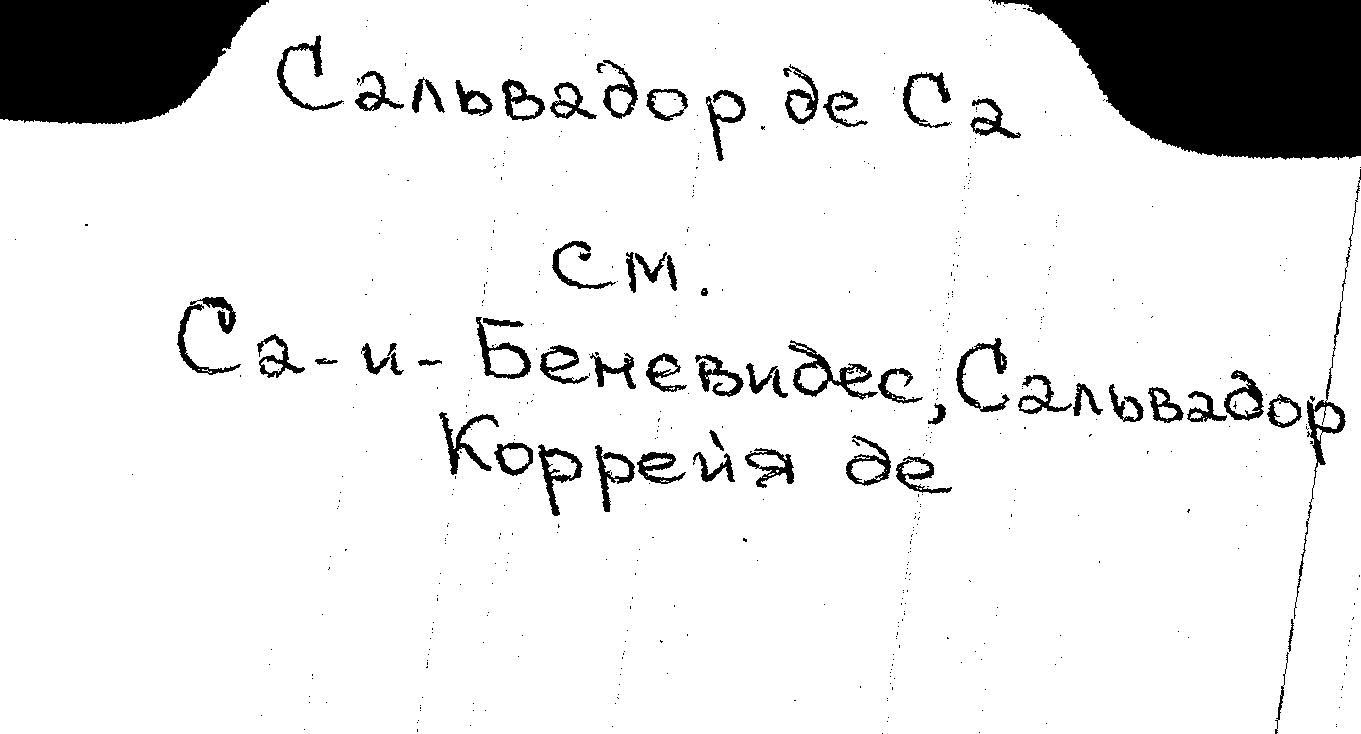 Сальвадор де Са
см.
Са-и-Беневидес, Сальвадор
Коррейя де